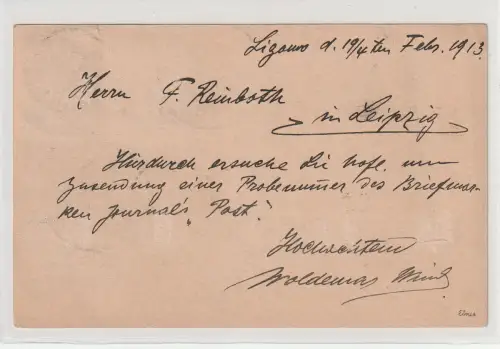 Ligowo d. 19/4ten Febr. 1913.
Herrn F. Reinboth
in Leipzig
Hierdurch ersuche Sie höfl. um
Zusendung einer Probenumer des Briefmar-
ken Journal's "Post".
Hochachtend
Woldemar